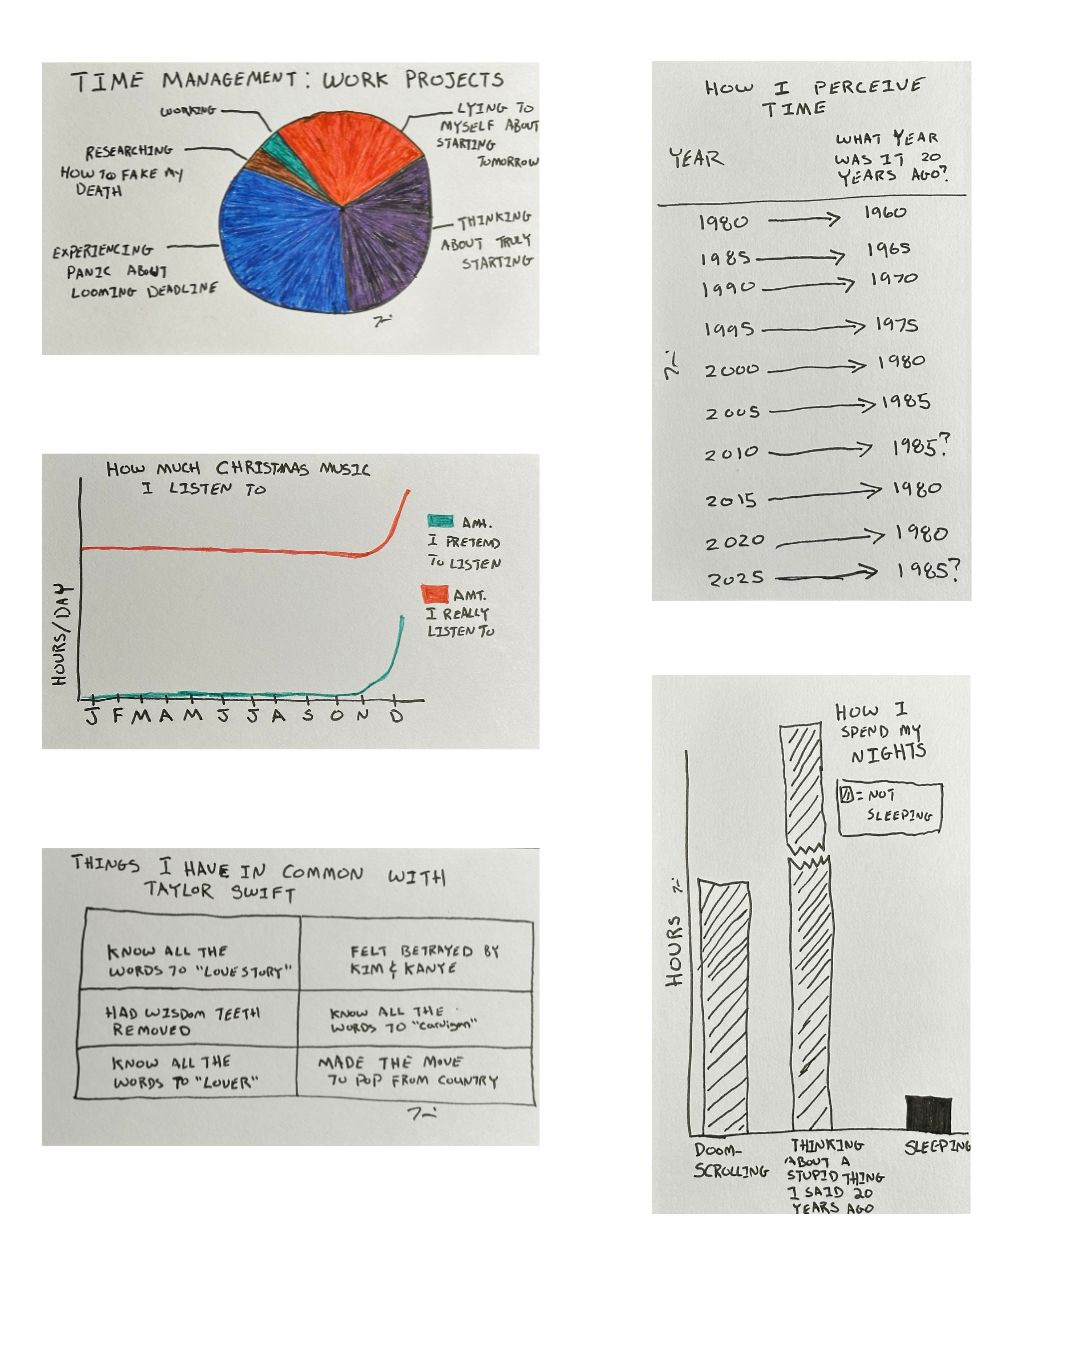 TIME MANAGEMENT: WORK PROJECTS
WORKING
LYING TO
MYSELF ABOUT
STARTING
TOMORROW
RESEARCHING
HOW TO FAKE MY
DEATH
THINKING
ABOUT TRULY
STARTING
EXPERIENCING
PANIC ABOUT
LOOMING DEADLINE
HOW MUCH CHRISTMAS MUSIC
I LISTEN TO
AMT.
I PRETEND
TO LISTEN
AMT.
I REALLY
LISTEN TO
HOURS/DAY
J F M A M J J A S O N D
THINGS I HAVE IN COMMON WITH
TAYLOR SWIFT
KNOW ALL THE
WORDS TO "LOVE STORY"
FELT BETRAYED BY
KIM & KANYE
HAD WISDOM TEETH
REMOVED
KNOW ALL THE
WORDS TO "cardigan"
KNOW ALL THE
WORDS TO "LOVER"
MADE THE MOVE
TO POP FROM COUNTRY
HOW I PERCEIVE
TIME
YEAR
WHAT YEAR
WAS IT 20
YEARS AGO?
1980 → 1960
1985 → 1965
1990 → 1970
1995 → 1975
2000 → 1980
2005 → 1985
2010 → 1985?
2015 → 1980
2020 → 1980
2025 → 1985?
HOW I
SPEND MY
NIGHTS
= NOT
SLEEPING
HOURS
DOOM-
SCROLLING
THINKING
ABOUT A
STUPID THING
I SAID 20
YEARS AGO
SLEEPING